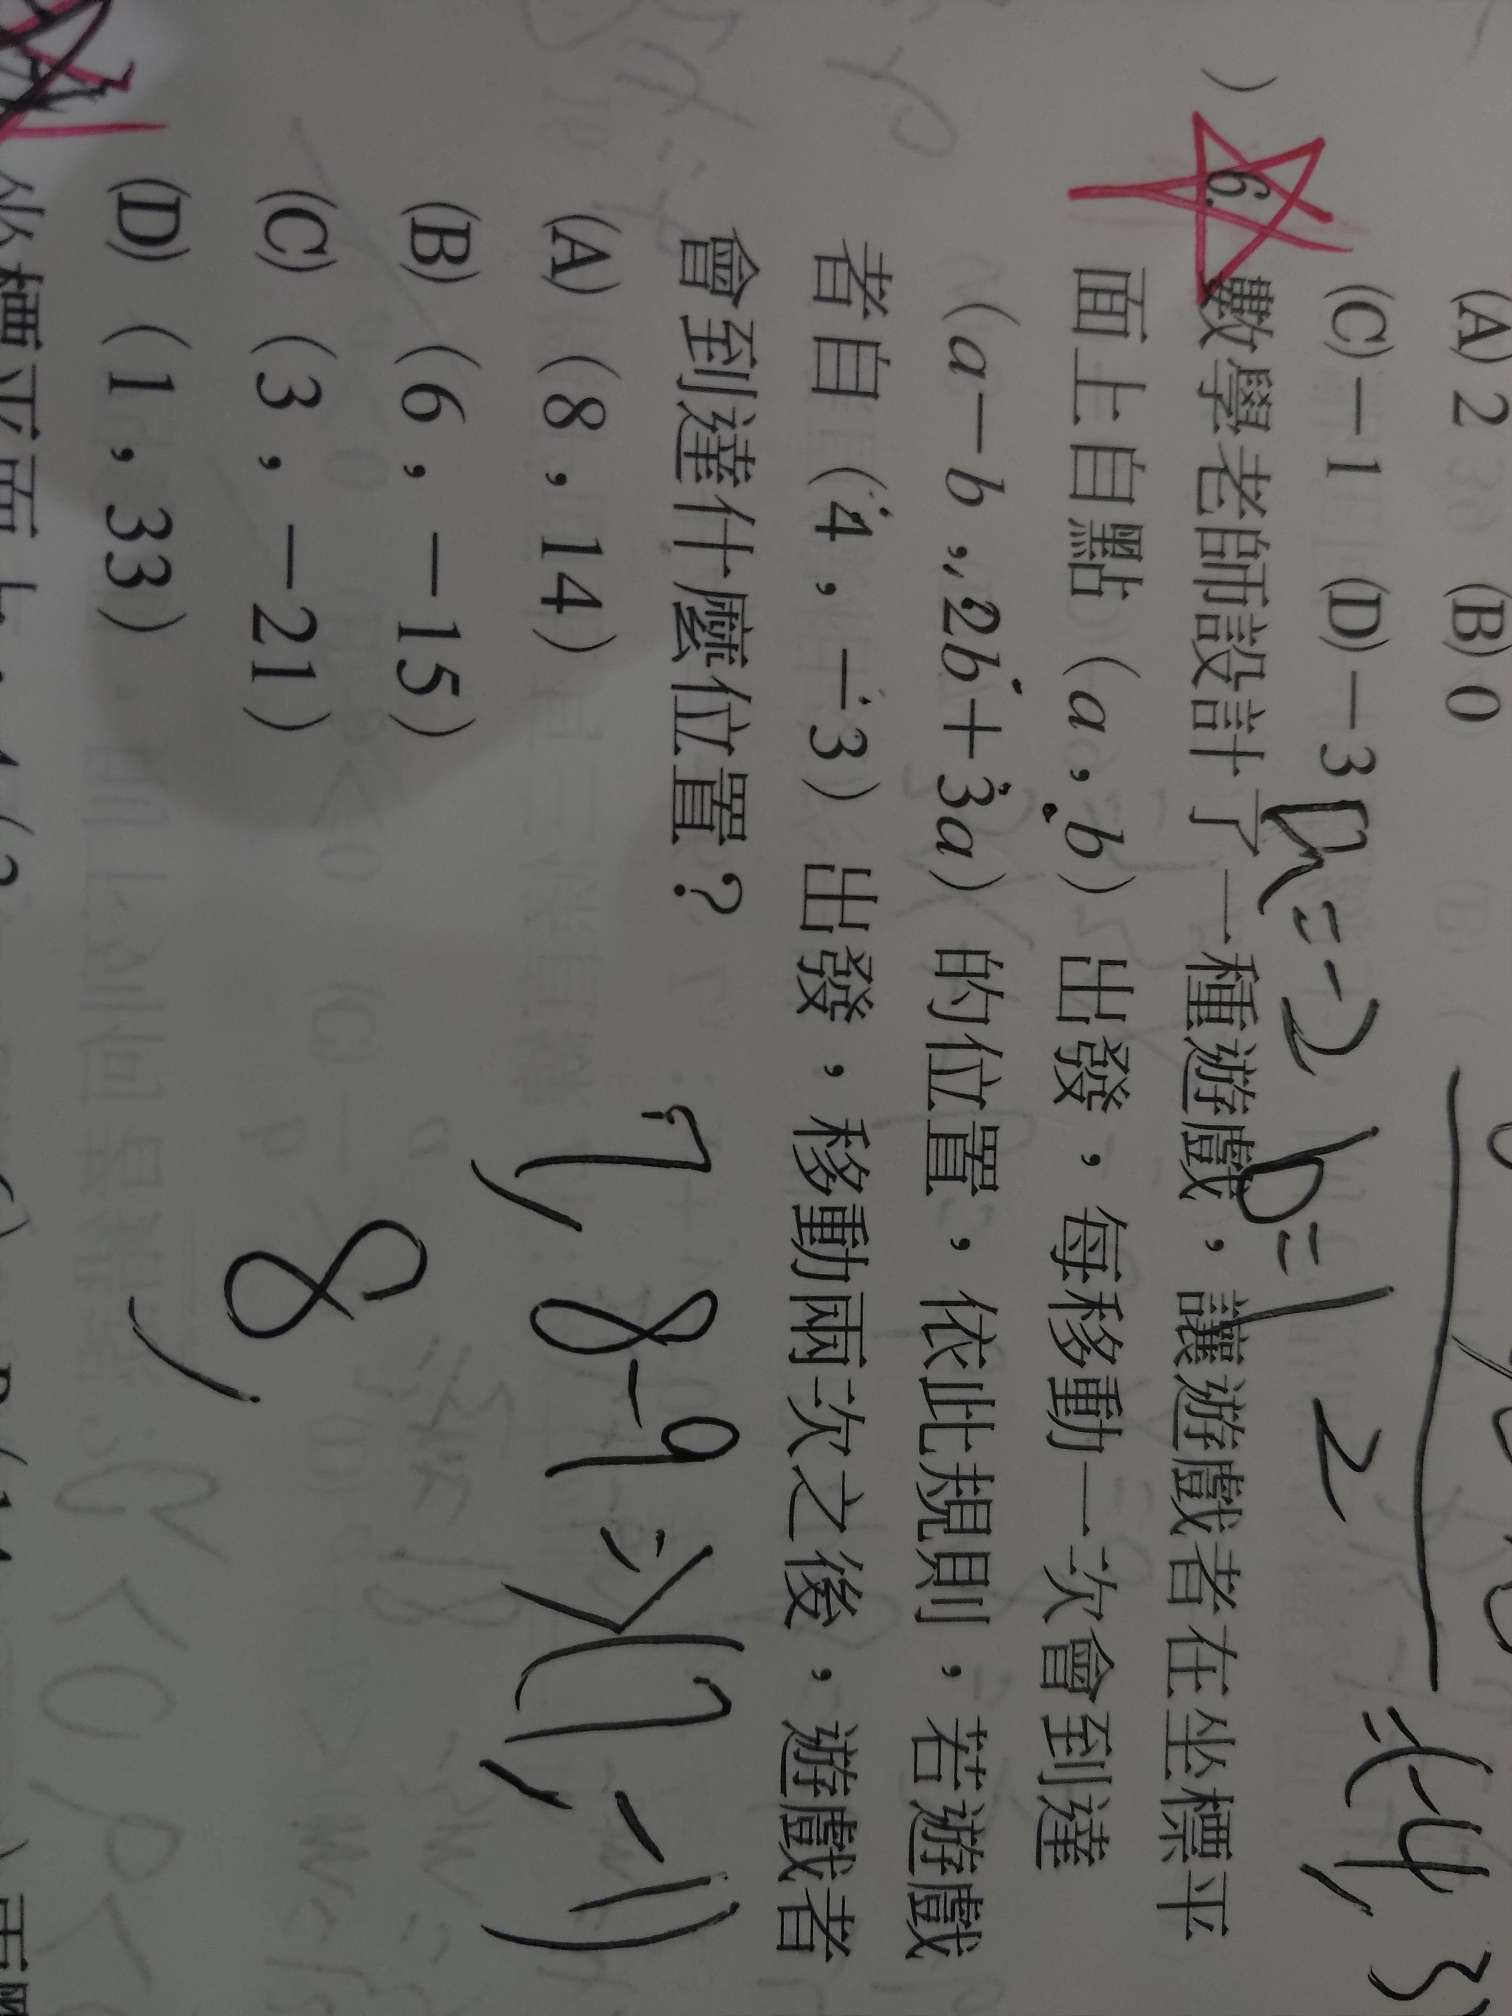 (A) 2 (B) 0
(C) －1 (D) －3
) 6. 數學老師設計了一種遊戲，讓遊戲者在坐標平
面上自點（a , b）出發，每移動一次會到達
（a－b , 2b＋3a）的位置，依此規則，若遊戲
者自（4 , －3）出發，移動兩次之後，遊戲者
會到達什麼位置？
(A)（8 , 14）
(B)（6 , －15）
(C)（3 , －21）
(D)（1 , 33）
b=1
2
=(-4, 3)
7, 8-9 ⇒ (7, -1)
8,